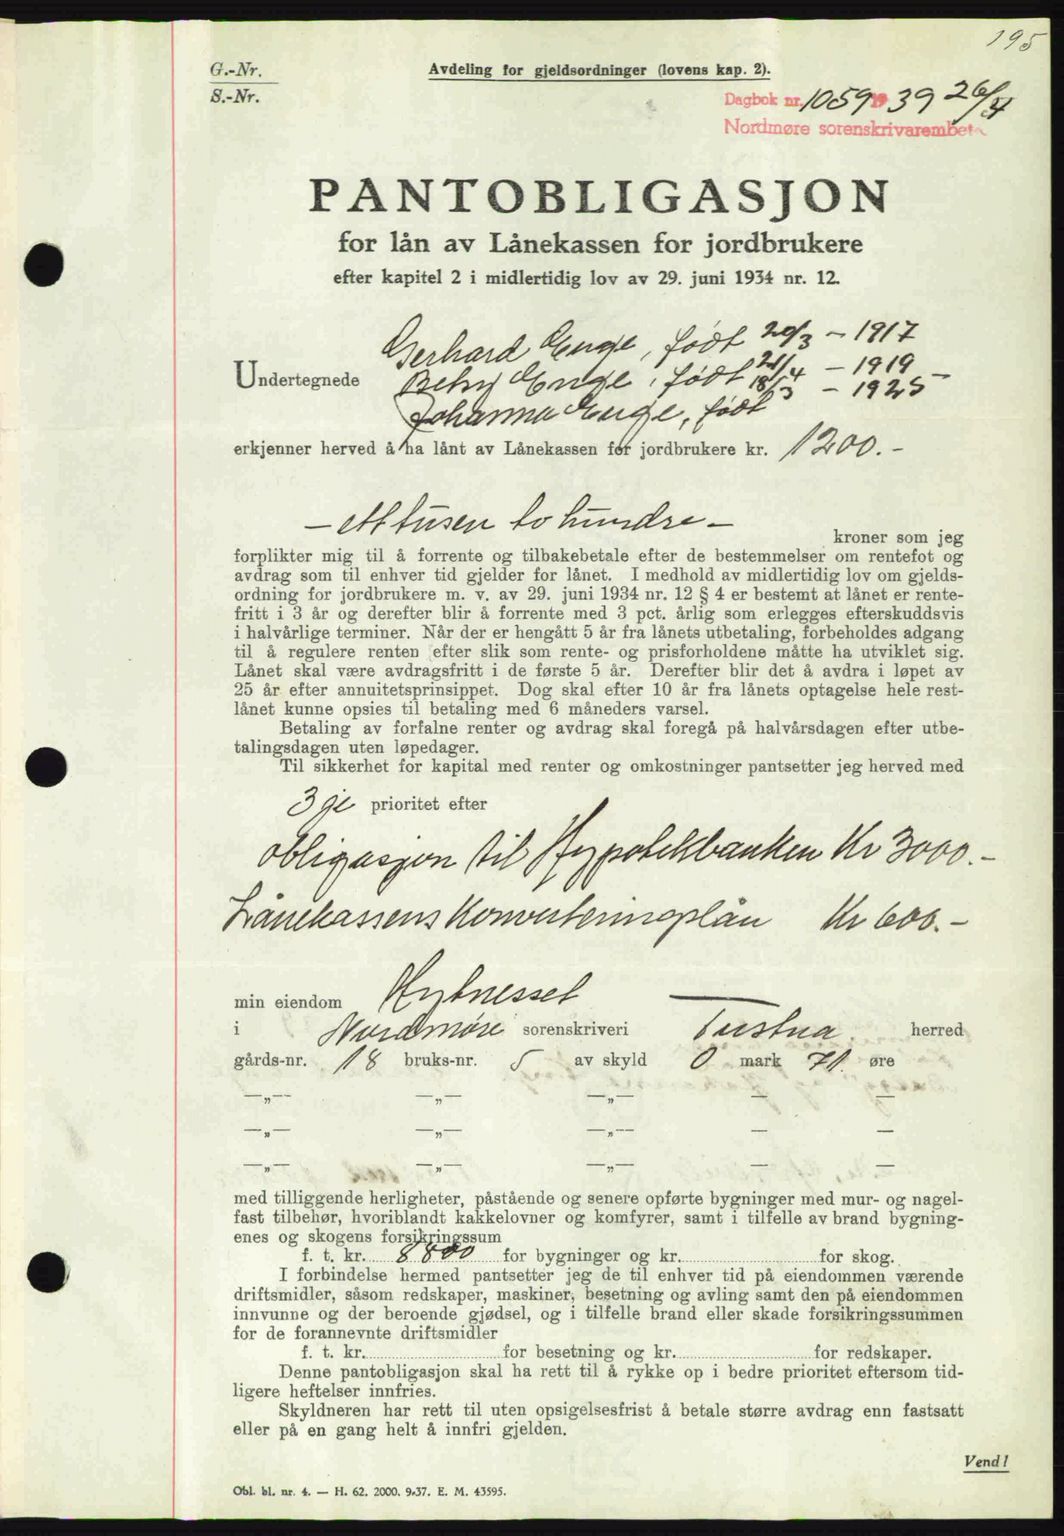 195
G.-Nr.
S.-Nr.
Avdeling for gjeldsordninger (lovens kap. 2).
Dagbok nr. 1059 1939 26/4
Nordmøre sorenskrivarembete
PANTOBLIGASJON
for lån av Lånekassen for jordbrukere
efter kapitel 2 i midlertidig lov av 29. juni 1934 nr. 12.
Gerhard Enge, født 20/3 – 1917
Undertegnede Betsy Enge, født 21/4 – 1919
Johanna Enge, født 18/3 – 1925 –
erkjenner herved å ha lånt av Lånekassen for jordbrukere kr. 1200.–
– ett tusen to hundre –
kroner som jeg
forplikter mig til å forrente og tilbakebetale efter de bestemmelser om rentefot og
avdrag som til enhver tid gjelder for lånet. I medhold av midlertidig lov om gjelds-
ordning for jordbrukere m. v. av 29. juni 1934 nr. 12 § 4 er bestemt at lånet er rente-
fritt i 3 år og derefter blir å forrente med 3 pct. årlig som erlegges efterskuddsvis
i halvårlige terminer. Når der er hengått 5 år fra lånets utbetaling, forbeholdes adgang
til å regulere renten efter slik som rente- og prisforholdene måtte ha utviklet sig.
Lånet skal være avdragsfritt i de første 5 år. Derefter blir det å avdra i løpet av
25 år efter annuitetsprinsippet. Dog skal efter 10 år fra lånets optagelse hele rest-
lånet kunne opsies til betaling med 6 måneders varsel.
Betaling av forfalne renter og avdrag skal foregå på halvårsdagen efter utbe-
talingsdagen uten løpedager.
Til sikkerhet for kapital med renter og omkostninger pantsetter jeg herved med
3 je prioritet efter
obligasjon til Hypotekbanken Kr 3000.–
Lånekassens Konverteringslån Kr 600.–
min eiendom Hytnesset
i Nordmøre sorenskriveri Tustna herred
gårds-nr. 18 bruks-nr. 5 av skyld 0 mark 71 øre
—„— —„— —„— — —
—„— —„— —„— — —
—„— —„— —„— — —
med tilliggende herligheter, påstående og senere opførte bygninger med mur- og nagel-
fast tilbehør, hvoriblandt kakkelovner og komfyrer, samt i tilfelle av brand bygning-
enes og skogens forsikringssum
f. t. kr. 8800 for bygninger og kr. for skog.
I forbindelse hermed pantsetter jeg de til enhver tid på eiendommen værende
driftsmidler, såsom redskaper, maskiner, besetning og avling samt den på eiendommen
innvunne og der beroende gjødsel, og i tilfelle brand eller skade forsikringssummen
for de forannevnte driftsmidler
f. t. kr. for besetning og kr. for redskaper.
Denne pantobligasjon skal ha rett til å rykke op i bedre prioritet eftersom tid-
ligere heftelser innfries.
Skyldneren har rett til uten opsigelsesfrist å betale større avdrag enn fastsatt
eller på en gang helt å innfri gjelden.
Vend!
Obl. bl. nr. 4. — H. 62. 2000. 9.37. E. M. 43595.